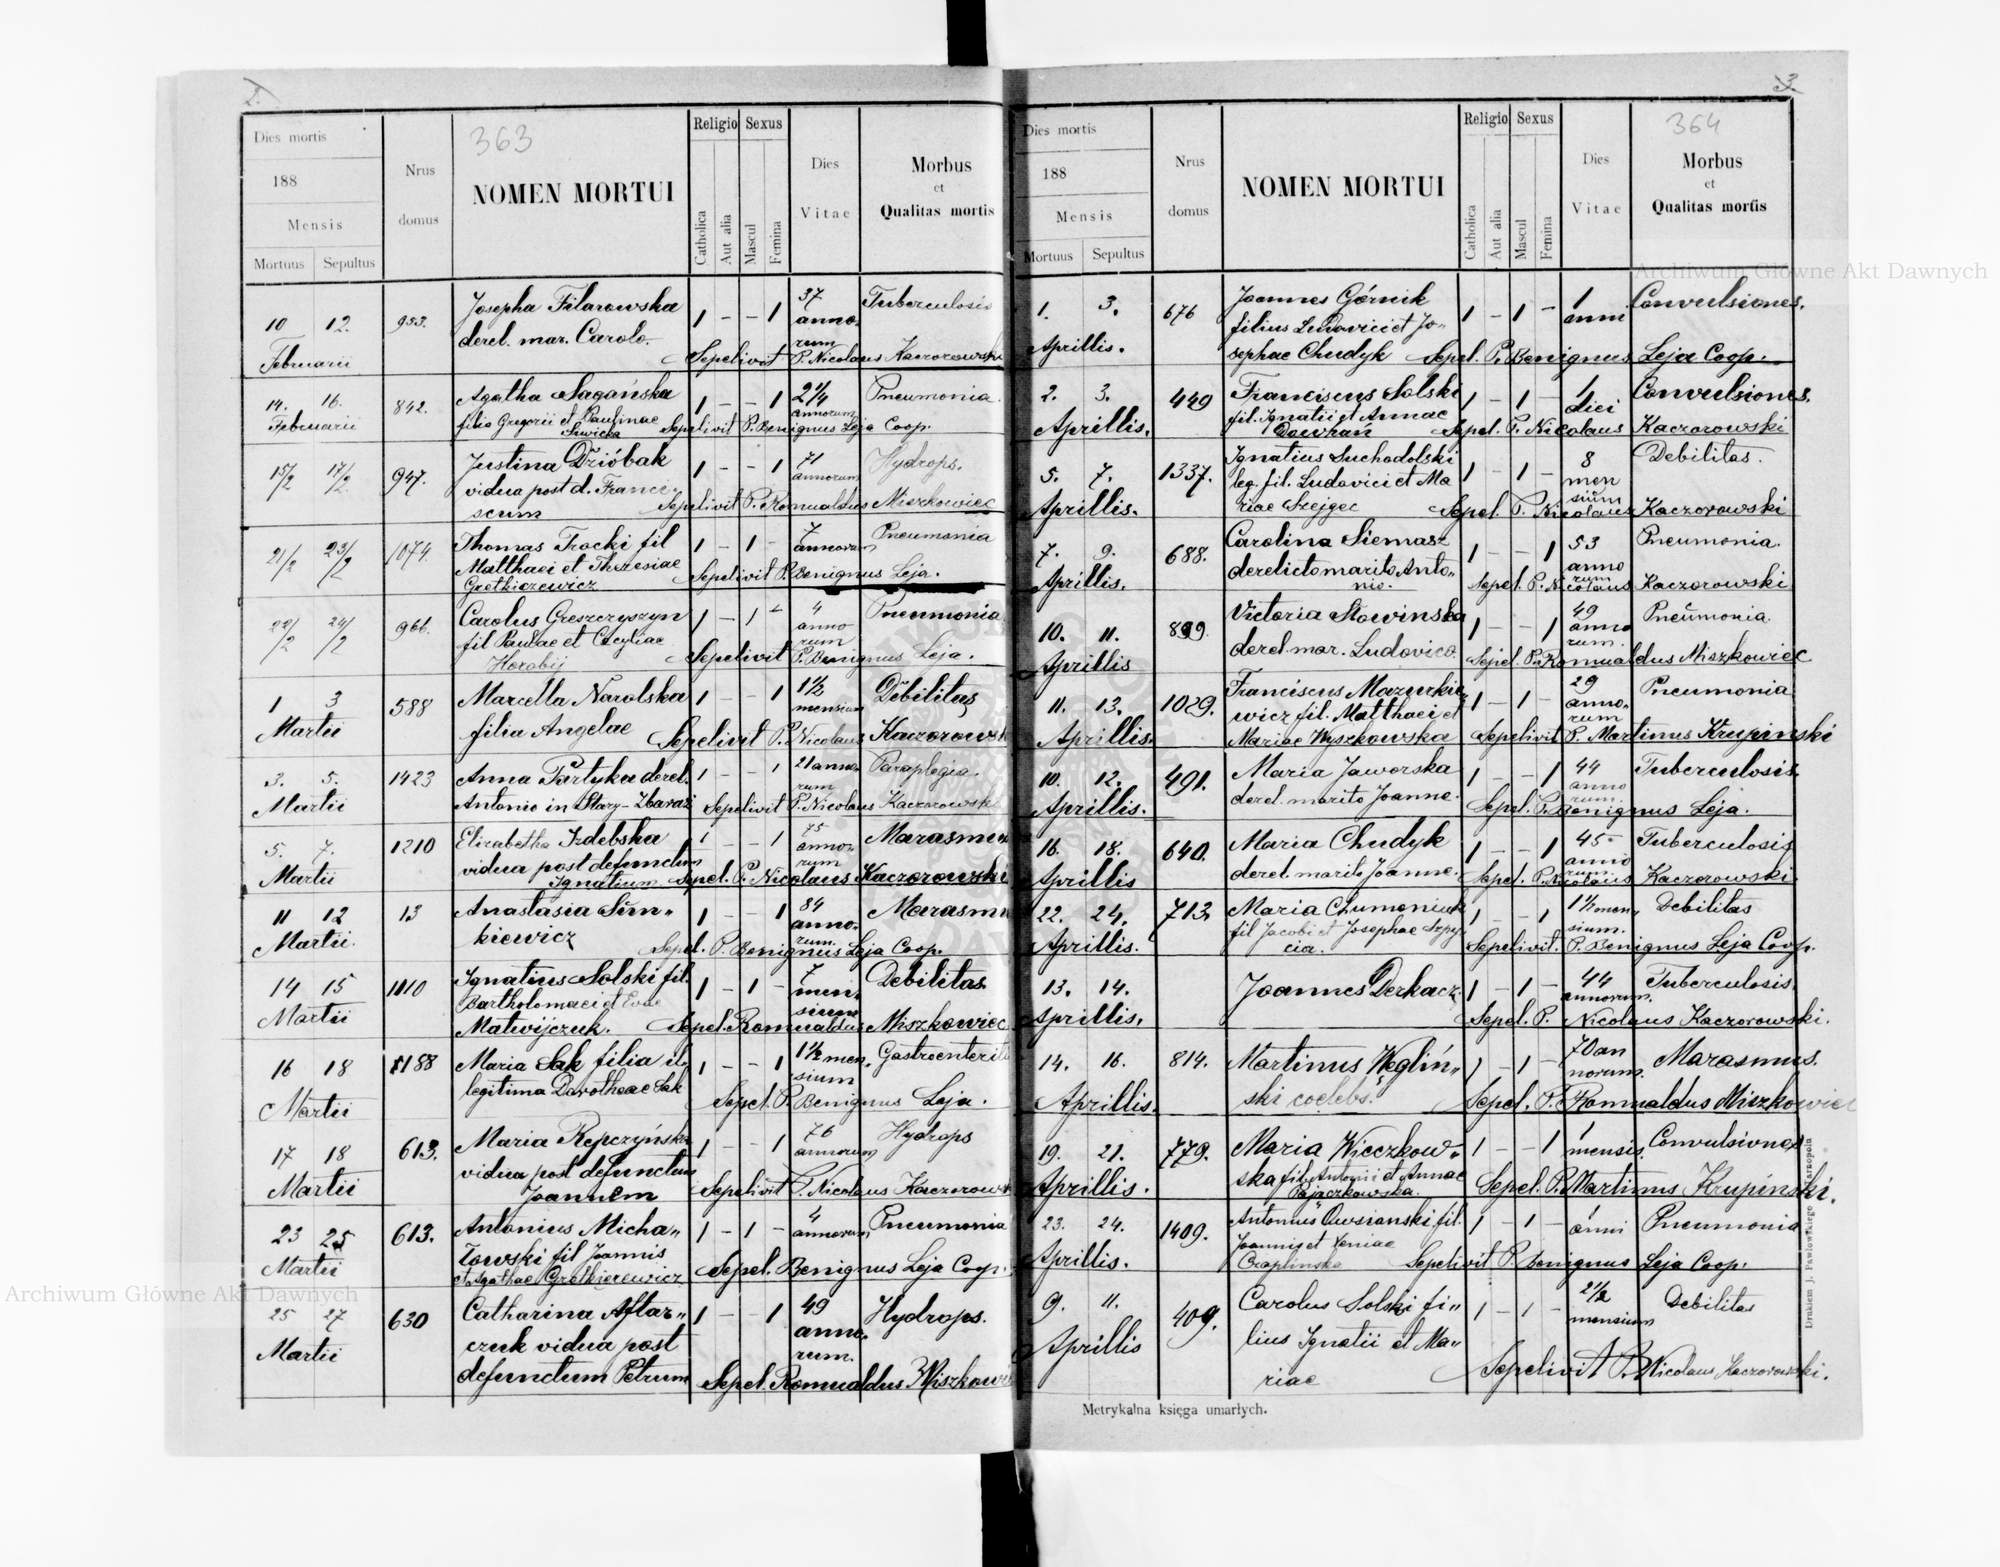 2.
363
Dies mortis
188
Mensis
Mortuus Sepultus
Nrus domus
NOMEN MORTUI
Religio
Catholica
Aut alia
Sexus
Mascul
Femina
Dies Vitae
Morbus et Qualitas mortis
10 12. 953. Josepha Filarowska 1 - - 1 37 Tuberculosis
Februarii derel. mar. Carolo. annorum
Sepelivit P. Nicolaus Kaczorowski
14. 16. 842. Agatha Sagańska 1 - - 1 2 1/4 Pneumonia
Februarii filia Gregorii et Paulinae annorum
Siwicka Sepelivit P. Benignus Leja Coop.
15/2 17/2 947. Justina Dzióbak 1 - - 1 71 Hydrops.
vidua post d. Franci- annorum
scum Sepelivit P. Romualdus Miszkowiec
21/2 23/2 1074. Thomas Trocki fil 1 - 1 - 7 Pneumonia
Matthaei et Theresiae annorum
Gretkiezewicz Sepelivit P. Benignus Leja.
22/2 24/2 966. Carolus Greszczyszyn 1 - 1 - 4 Pneumonia
fil Paulae et Cecyliae annorum
Horobij Sepelivit P. Benignus Leja.
1 3 588 Marcella Narolska 1 - - 1 1 1/2 Debilitas
Martii filia Angelae mensium
Sepelivit P. Nicolaus Kaczorowsk
3. 5. 1423 Anna Partyka derel. 1 - - 1 21 annorum Paraplegia.
Martii Antonio in Stary-Zbaraż Sepelivit P. Nicolaus Kaczorowski
5. 7. 1210 Elizabetha Izdebska 1 - - 1 75 Marasmus
Martii vidua post defunctum annorum
Ignatium Sepel. P. Nicolaus Kaczorowski
11 12 13 Anastasia Sim- 1 - - 1 84 Marasmu
Martii. kiewicz annorum.
Sepel. P. Benignus Leja Coop.
14 15 1110 Ignatius Solski fil. 1 - 1 - 7 Debilitas
Martii Bartholomaei et Evae mensium
Matwijczuk. Sepel. Romualdus Miszkowiec
16 18 1188 Maria Sak filia il- 1 - - 1 1 1/2 mensium Gastroenteriti
Martii legitima Dorotheae Sak
Sepel. P. Benignus Leja.
17 18 613. Maria Repczyńska 1 - - 1 76 Hydrops
Martii vidua post defunctum annorum
Joannem Sepelivit P. Nicolaus Kaczorowsk
23 25 613. Antonius Micha- 1 - 1 - 4 Pneumonia
Martii łowski fil Joannis annorum
et Agathae Gretkierewicz Sepel. Benignus Leja Coop.
25 27 630 Catharina Aftar- 1 - - 1 49 Hydrops.
Martii czuk vidua post annorum.
defunctum Petrum Sepel. Romualdus Miszkowi
3.
364
Dies mortis
188
Mensis
Mortuus Sepultus
Nrus domus
NOMEN MORTUI
Religio
Catholica
Aut alia
Sexus
Mascul
Femina
Dies Vitae
Morbus et Qualitas mortis
1. 3. 676 Joannes Górnik 1 - 1 - 1 Convulsiones.
Aprillis. filius Ludovici et Jo- anni
sephae Chudyk Sepel. P. Benignus Leja Coop.
2. 3. 449 Franciscus Solski 1 - 1 - 1 Convulsiones.
Aprillis. fil. Ignatii et Annae diei
Dowhań Sepel. P. Nicolaus Kaczorowski
5. 7. 1337. Ignatius Suchodolski 1 - 1 - 8 Debilitas.
Aprillis. leg. fil. Ludovici et Ma mensium
riae Szejgec Sepel. P. Nicolaus Kaczorowski
7. 9. 688. Carolina Siemasz 1 - - 1 53 Pneumonia.
Aprillis. derelicto marito Anto- annorum
nio. Sepel. P. Nicolaus Kaczorowski
10. 11. 899. Victoria Słowinska 1 - - 1 49 Pneumonia.
Aprillis derel. mar. Ludovico. annorum.
Sepel. P. Romualdus Miszkowiec
11. 13. 1029. Franciscus Mazurkie- 1 - 1 - 29 Pneumonia
Aprillis. wicz fil. Matthaei et annorum
Mariae Wyszkowska Sepelivit P. Martinus Krupinski
10. 12. 491. Maria Jaworska 1 - - 1 44 Tuberculosis
Aprillis. derel. marito Joanne. annorum.
Sepel. P. Benignus Leja.
16. 18. 640. Maria Chudyk 1 - - 1 45 Tuberculosis
Aprillis derel. marito Joanne. annorum
Sepel. P. Nicolaus Kaczorowski
22. 24. 713. Maria Chumeniuk 1 - - 1 1 1/2 mensium. Debilitas
Aprillis. fil Jacobi et Josephae Szpy-
cia. Sepelivit. P. Benignus Leja Coop.
13. 14. Joannes Derkacz. 1 - 1 - 44 Tuberculosis.
Aprillis. annorum.
Sepel. P. Nicolaus Kaczorowski.
14. 16. 814. Martinus Węglin- 1 - 1 - 70 annorum. Marasmus.
Aprillis. ski coelebs. Sepel. P. Romualdus Miszkowiec
19. 21. 779. Maria Wieczkow- 1 - - 1 1 mensis. Convulsiones
Aprillis. ska fil. Antonii et Annae
Pajaczkowska. Sepel. P. Martinus Krupinski.
23. 24. 1409. Antonius Owsianski fil. 1 - 1 - 1 anni Pneumonia
Aprillis. Joannis et Xeniae
Czaplinska Sepelivit P. Benignus Leja Coop.
9. 11. 409. Carolus Solski fi- 1 - 1 - 2 1/2 Debilitas
Aprillis lius Ignatii et Ma- mensium
riae Sepelivit P. Nicolaus Kaczorowski.
Metrykalna księga umarłych.
Drukiem J. Pawłowskiego w Tarnopolu
Archiwum Główne Akt Dawnych
Archiwum Główne Akt Dawnych